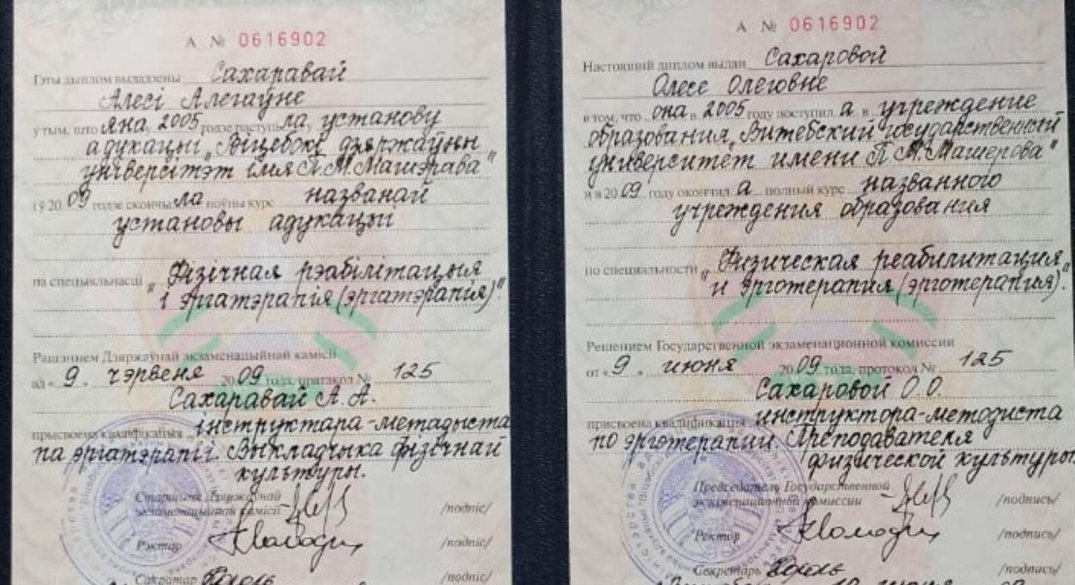 А № 0616902
Гэты дыплом выдадзены Сахаравай
Алесі Алегаўне
у тым, што яна ў 2005 годзе паступіла ва ўстанову
адукацыі „Віцебскі дзяржаўны
універсітэт імя П.М.Машэрава"
і ў 2009 годзе скончыла поўны курс названай
установы адукацыі
па спецыяльнасці „Фізічная рэабілітацыя
і эргатэрапія (эргатэрапія)".
Рашэннем Дзяржаўнай экзаменацыйнай камісіі
ад «9» чэрвеня 2009 года, пратакол № 125
Сахаравай А.А.
прысвоена кваліфікацыя „інструктара-метадыста
па эргатэрапіі. Выкладчыка фізічнай
культуры.
Старшыня Дзяржаўнай
экзаменацыйнай камісіі /подпіс/
Рэктар /подпіс/
Сакратар
А № 0616902
Настоящий диплом выдан Сахаровой
Олесе Олеговне
в том, что она в 2005 году поступила в учреждение
образования „Витебский государственный
университет имени П.М.Машерова"
и в 2009 году окончила полный курс названного
учреждения образования
по специальности „Физическая реабилитация
и эрготерапия (эрготерапия)".
Решением Государственной экзаменационной комиссии
от «9» июня 2009 года, протокол № 125
Сахаровой О.О.
присвоена квалификация „инструктора-методиста
по эрготерапии. Преподавателя
физической культуры.
Председатель Государственной
экзаменационной комиссии /подпись/
Ректор /подпись/
Секретарь /подпись/